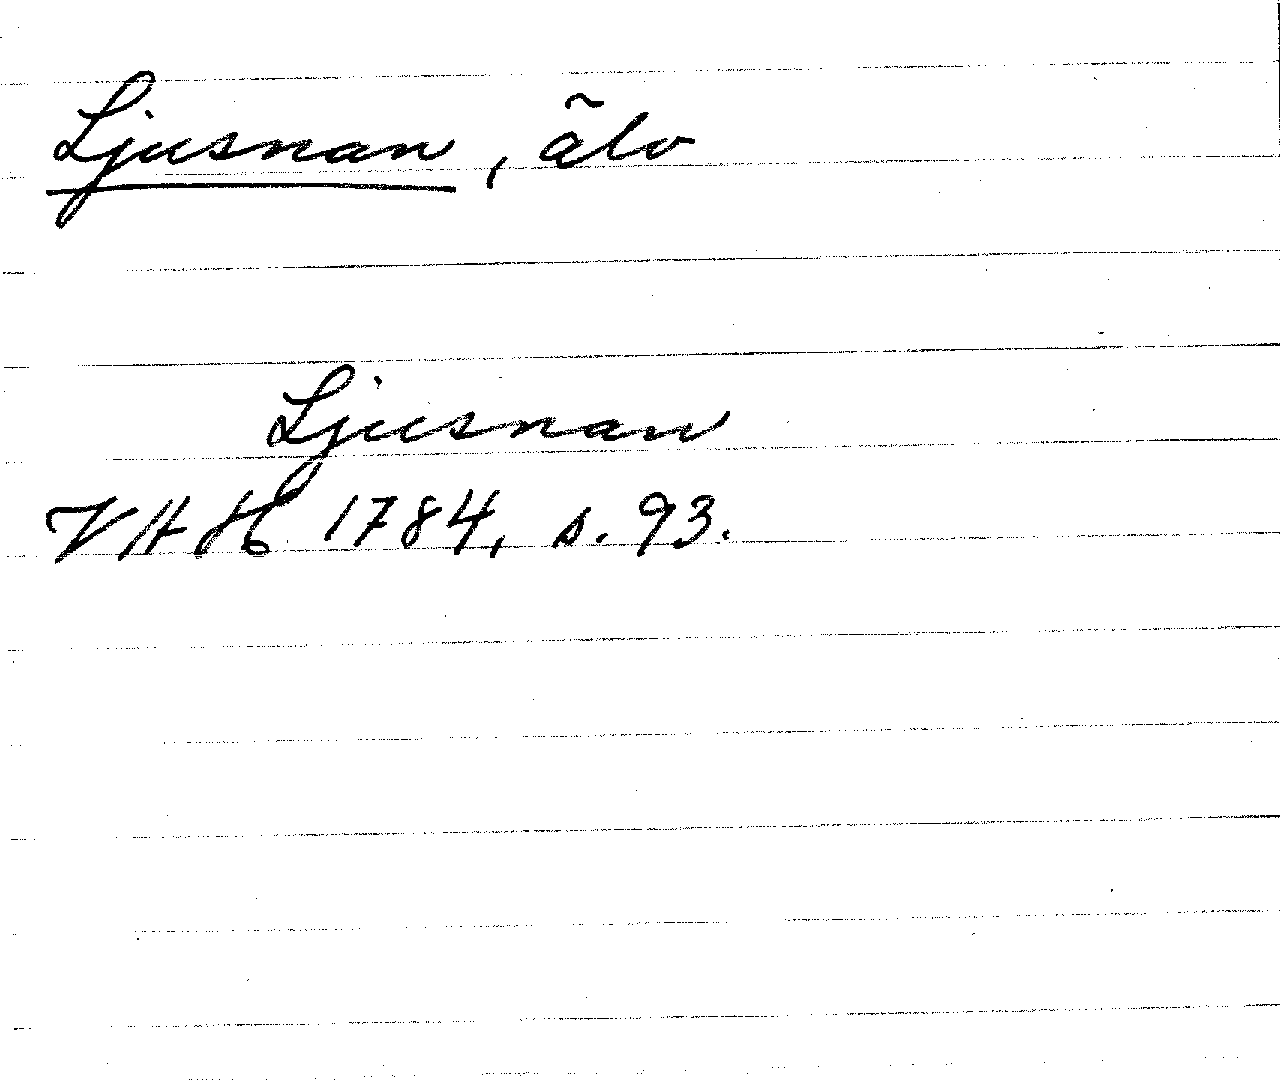 Ljusnan, älv
Ljusnan
VAH 1784, s. 93.